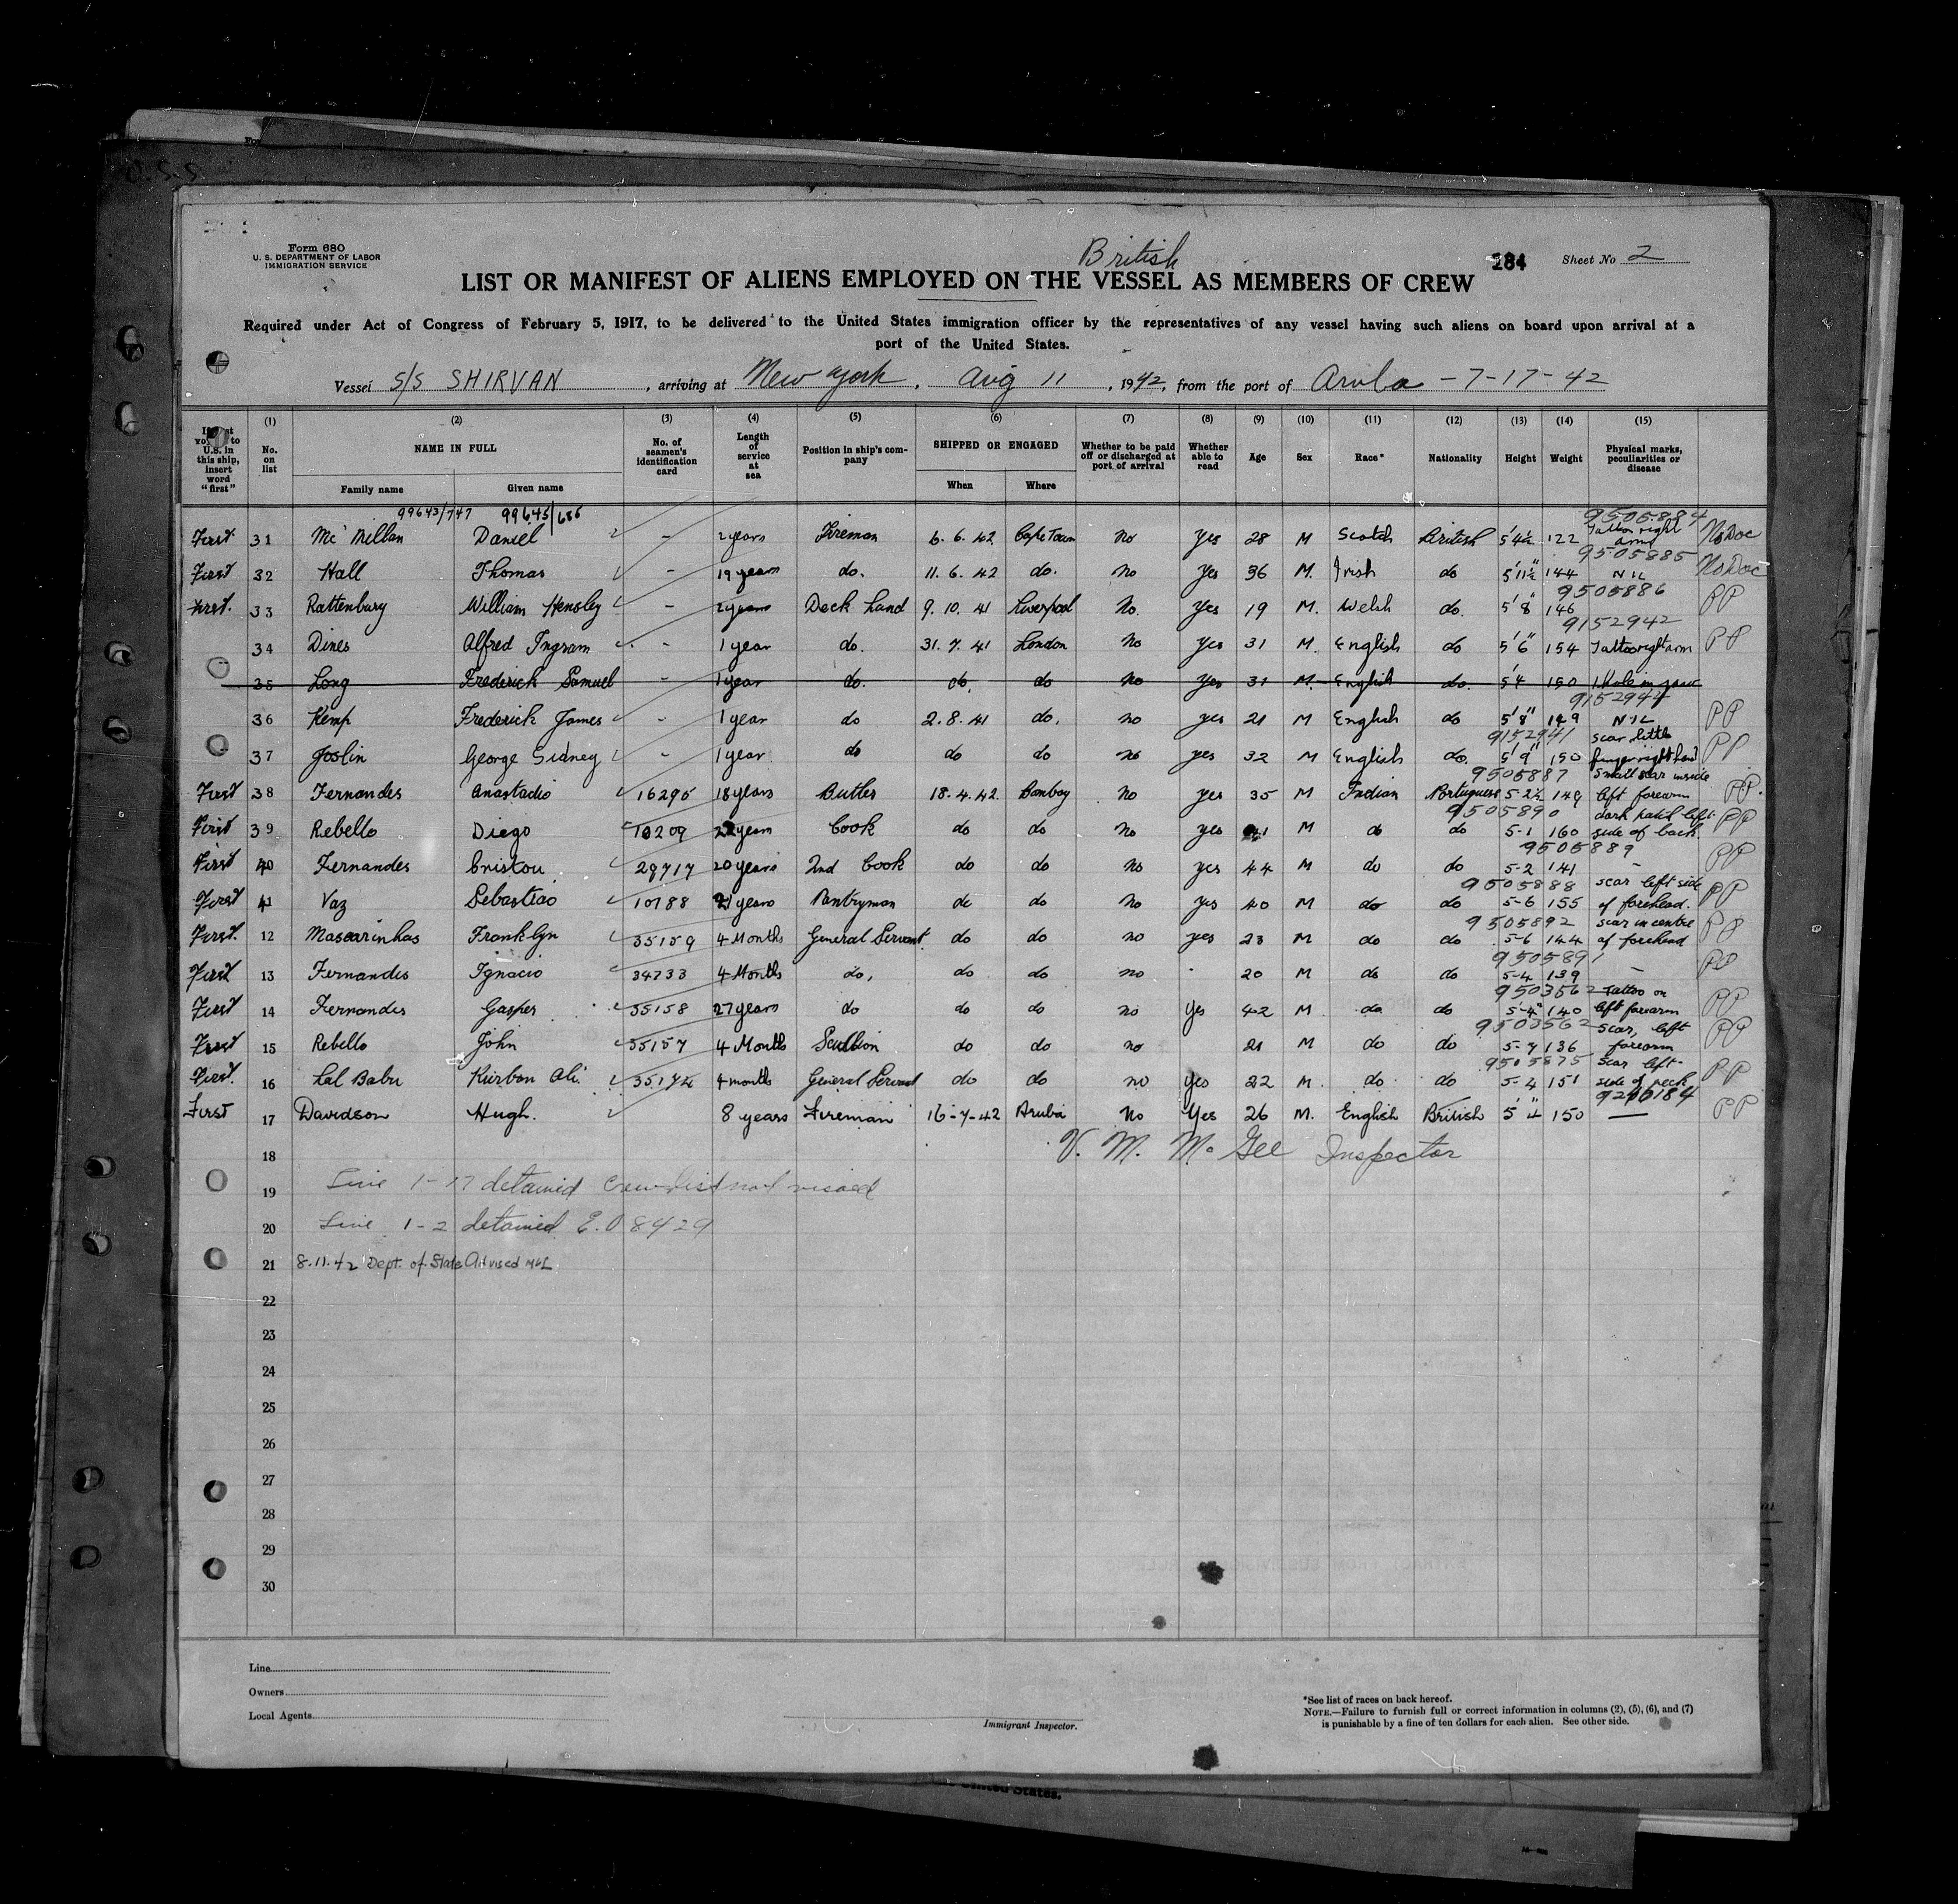 Form 680
U. S. DEPARTMENT OF LABOR
IMMIGRATION SERVICE
British
184
Sheet No 2
LIST OR MANIFEST OF ALIENS EMPLOYED ON THE VESSEL AS MEMBERS OF CREW
Required under Act of Congress of February 5, 1917, to be delivered to the United States immigration officer by the representatives of any vessel having such aliens on board upon arrival at a
port of the United States.
Vessel S/S SHIRVAN, arriving at New York, Aug 11, 1942, from the port of Aruba - 7-17-42
(1) (2) (3) (4) (5) (6) (7) (8) (9) (10) (11) (12) (13) (14) (15)
U.S. in this ship, insert word "first" No. on list NAME IN FULL No. of seamen's identification card Length of service at sea Position in ship's company SHIPPED OR ENGAGED Whether to be paid off or discharged at port of arrival Whether able to read Age Sex Race* Nationality Height Weight Physical marks, peculiarities or disease
Family name Given name When Where
99643/747 99645/686 9505884
First 31 Mc Millan Daniel - 2 years Fireman 6.6.42 Cape Town No Yes 28 M Scotch British 5'4½ 122 Tattoo right arm No Doc
9505885
First 32 Hall Thomas - 19 years do. 11.6.42 do. No Yes 36 M. Irish do 5'11½ 144 NIL No Doc
9505886
First. 33 Rattenbury William Hensley - 2 years Deck Hand 9.10.41 Liverpool No. Yes 19 M. Welsh do. 5'8" 146 PP
9152942
34 Dines Alfred Ingram - 1 year do. 31.7.41 London No Yes 31 M. English do 5'6" 154 Tattoo right arm PP
35 Long Frederick Samuel - 1 year do. do. do No Yes 31 M. English do. 5'4 150
9152944
36 Kemp Frederick James - 1 year do 2.8.41 do. no yes 21 M English do 5'8" 149 NIL PP
9152941
37 Joslin George Sidney 1 year do do do no yes 32 M English do. 5'9" 150 scar little finger right hand PP
9505887
First 38 Fernandes Anastacio 16295 18 years Butler 18.4.42. Bombay No yes 35 M Indian Portuguese 5-2½ 149 Small scar inside left forearm PP.
9505890
First 39 Rebello Diego 10209 22 years Cook do do no yes 41 M do do 5-1 160 dark patch left side of back. PP
9505889
First 40 Fernandes Cristou 28717 20 years 2nd Cook do do no yes 44 M do do 5-2 141 - PP
9505888
First 41 Vaz Sebastiao 10788 21 years Pantryman do do No yes 40 M do do 5-6 155 scar left side of forehead. PP
9505892
First. 12 Mascarinhas Franklyn 35159 4 Months General Servant do do no yes 23 M do do 5-6 144 scar in centre of forehead PP
9505891
First 13 Fernandes Ignacio 34733 4 Months do, do do no - 20 M do do 5-4 139 - PP
9503562
First 14 Fernandes Gasper 35158 27 years do do do no Yes 42 M do do 5-4" 140 Tattoo on left forearm PP
9503562
First 15 Rebello John 35157 4 Months Scullion do do no 21 M do do 5-7 136 scar, left forearm PP
9505875
First. 16 Lal Babu Kurban Ali. 35174 4 months General Servant do do no yes 22 M. do. do 5-4 151 scar left side of neck PP
First 17 Davidson Hugh. 8 years Fireman 16-7-42 Aruba No Yes 26 M. English British 5'4" 150 — PP
18 V. M. McGee Inspector
19 Line 1-17 detained Crew list not visaed
20 Line 1-2 detained E.O 8429
21 8.11.42 Dept. of State Advised
22
23
24
25
26
27
28
29
30
Line
Owners
Local Agents
Immigrant Inspector.
*See list of races on back hereof.
NOTE.—Failure to furnish full or correct information in columns (2), (5), (6), and (7)
is punishable by a fine of ten dollars for each alien. See other side.
United States.